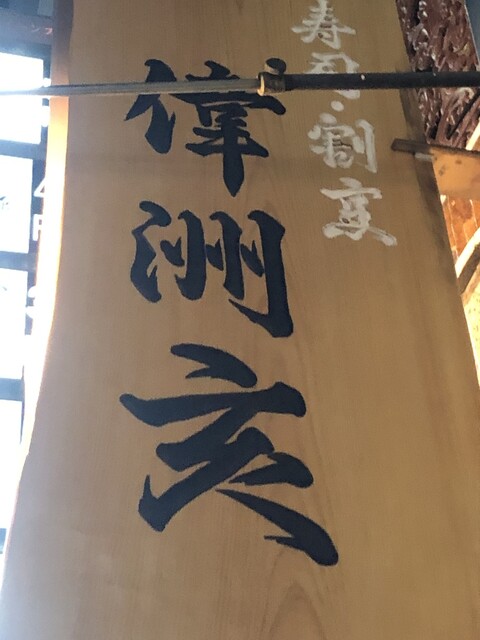 寿司・割烹
偉洲亥